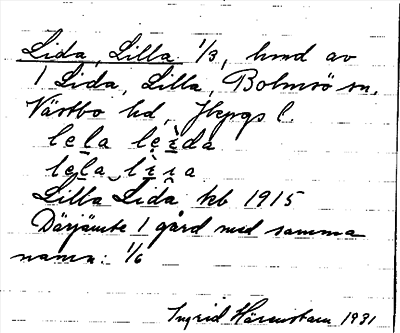 Lida, Lilla 1/3, hmd av
1 Lida, Lilla, Bolmsö sn.
Västbo hd, Jkpgs l.
lela leida
lela lìia
Lilla Lida kb 1915
Därjämte 1 gård med samma
namn: 1/6
Ingrid 1931